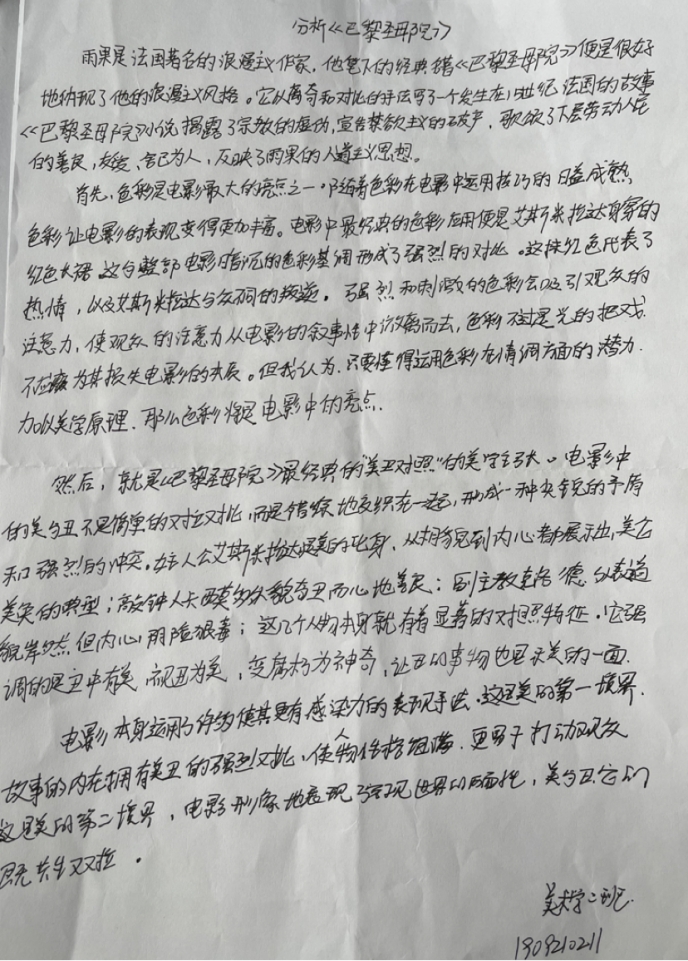 分析《巴黎圣母院》
雨果是法国著名的浪漫主义作家，他笔下的经典 《巴黎圣母院》便是很好
地体现了他的浪漫主义风格。它以离奇和对比的手法写了一个发生在15世纪法国的故事
《巴黎圣母院》小说揭露了宗教的虚伪，宣告禁欲主义的破产，歌颂了下层劳动人民
的善良，友爱，舍己为人，反映了雨果的人道主义思想。
首先，色彩是电影最大的亮点之一。随着色彩在电影中运用技巧的日益成熟
色彩让电影的表现变得更加丰富。电影中最经典的色彩应用便是艾斯米拉达身穿的
红色长裙 这与整部电影暗沉的色彩基调形成了强烈的对比。这抹红色代表了
热情，以及艾斯米拉达与众不同的叛逆。强烈和刺激的色彩会吸引观众的
注意力，使观众的注意力从电影的叙事性中游离而去，色彩不过是光的把戏
不应该为其损失电影的本质。但我认为，只要懂得运用色彩在情调方面的潜力
加以美学原理，那么色彩将是电影中的亮点.
然后，就是《巴黎圣母院》最经典的"美丑对照"的美学主张。电影中
的美与丑不是简单的对立对比，而是错综地交织在一起，形成一种尖锐的矛盾
和强烈的冲突。女主人公艾斯米拉达是美的化身，从相貌到内心都展示出 美
的典型；敲钟人卡西莫多外貌奇丑而心地善良：副主教克洛德 外表道
貌岸然 但内心阴险狠毒；这几个人物本身就有着显著的对照特征。它强
调的是丑中有美，视丑为美，变腐朽为神奇，让丑的事物也显示美的一面.
电影本身运用了许多使其更有感染力的表现手法.这是美的第一境界.
故事的内在拥有美丑的强烈对比，使人物性格饱满.更易于打动观众
这是美的第二境界，电影形象地表现了 现世界的 ，美与丑它们
既共生又对立。
美术学二班.
1909210211